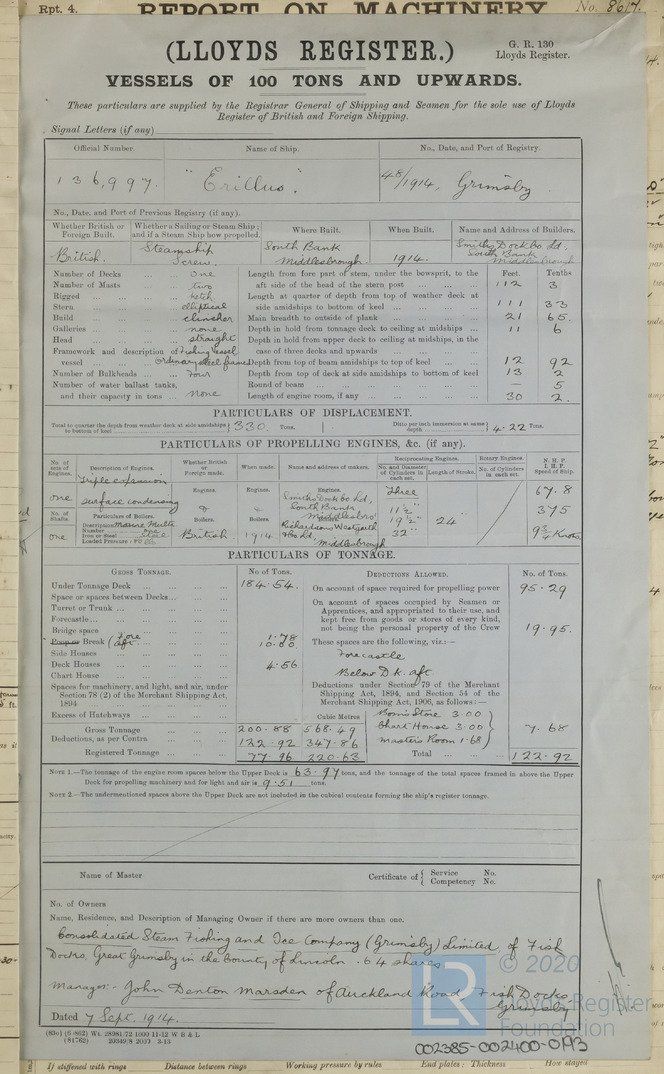 Rpt. 4.
REPORT ON MACHINERY
No. 8617.
(LLOYDS REGISTER.)
G. R. 130
Lloyds Register.
VESSELS OF 100 TONS AND UPWARDS.
These particulars are supplied by the Registrar General of Shipping and Seamen for the sole use of Lloyds
Register of British and Foreign Shipping.
Signal Letters (if any)
Official Number. Name of Ship. No., Date, and Port of Registry.
136,997. "Erillus". 48/1914, Grimsby.
No., Date, and Port of Previous Registry (if any).
Whether British or Foreign Built. Whether a Sailing or Steam Ship; and if a Steam Ship how propelled. Where Built. When Built. Name and Address of Builders.
British. Steamship Screw. South Bank Middlesbrough. 1914. Smiths Dock Co Ld. South Bank Middlesbrough
Number of Decks ... One
Number of Masts ... two
Rigged ... ketch
Stern ... elliptical
Build ... clincher
Galleries ... none
Head ... straight
Framework and description of vessel ... Fishing Vessel ordinary steel frames
Number of Bulkheads ... Four
Number of water ballast tanks, and their capacity in tons ... none
Feet. Tenths
Length from fore part of stem, under the bowsprit, to the aft side of the head of the stern post ... 112 3
Length at quarter of depth from top of weather deck at side amidships to bottom of keel ... 111 33
Main breadth to outside of plank ... 21 65.
Depth in hold from tonnage deck to ceiling at midships ... 11 6
Depth in hold from upper deck to ceiling at midships, in the case of three decks and upwards ...
Depth from top of beam amidships to top of keel ... 12 92
Depth from top of deck at side amidships to bottom of keel 13 2
Round of beam ... — 5
Length of engine room, if any ... 30 2.
PARTICULARS OF DISPLACEMENT.
Total to quarter the depth from weather deck at side amidships to bottom of keel 330. Tons. Ditto per inch immersion at same depth 4.22 Tons.
PARTICULARS OF PROPELLING ENGINES, &c. (if any).
No. of sets of Engines. Description of Engines. Whether British or Foreign made. When made. Name and address of makers. Reciprocating Engines. No. and Diameter of Cylinders in each set. Length of Stroke. Rotary Engines. No. of Cylinders in each set. N. H. P. I. H. P. Speed of Ship.
one Triple expansion surface condensing
Engines. Engines. Engines. Smiths Dock Co Ld, South Bank Middlesbro
Three 11½" 19½" 32" 24"
67.8
375
9¾ Knots
No. of Shafts. one
Particulars of Boilers.
Description Marine Multi
Number one
Iron or Steel Steel
Loaded Pressure
Boilers. British Boilers. 1914 Richardsons Westgarth & Co Ld, Middlesbrough
PARTICULARS OF TONNAGE.
GROSS TONNAGE. No of Tons.
Under Tonnage Deck ... 184.54.
Space or spaces between Decks...
Turret or Trunk ...
Forecastle...
Bridge space
Poop or Break (Fore 1.78
(aft 10.00
Side Houses
Deck Houses 4.56
Chart House
Spaces for machinery, and light, and air, under Section 78 (2) of the Merchant Shipping Act, 1894
Excess of Hatchways
Cubic Metres
Gross Tonnage 200.88 568.49
Deductions, as per Contra 122.92 347.86
Registered Tonnage 77.96 220.63
DEDUCTIONS ALLOWED. No. of Tons.
On account of space required for propelling power 95.29
On account of spaces occupied by Seamen or Apprentices, and appropriated to their use, and kept free from goods or stores of every kind, not being the personal property of the Crew 19.95.
These spaces are the following, viz.:—
Forecastle
Below Dk. aft
Deductions under Section 79 of the Merchant Shipping Act, 1894, and Section 54 of the Merchant Shipping Act, 1906, as follows:—
Bosns Store 3.00
Chart House 3.00
Masters Room 1.68
7.68
Total 122.92
NOTE 1.—The tonnage of the engine room spaces below the Upper Deck is 63.97 tons, and the tonnage of the total spaces framed in above the Upper
Deck for propelling machinery and for light and air is 9.51 tons.
NOTE 2.—The undermentioned spaces above the Upper Deck are not included in the cubical contents forming the ship's register tonnage.
Name of Master Certificate of { Service No. Competency No.
No. of Owners
Name, Residence, and Description of Managing Owner if there are more owners than one.
Consolidated Steam Fishing and Ice Company (Grimsby) Limited, of Fish
Docks, Great Grimsby in the County of Lincoln. 64 shares
Manager:- John Denton Marsden of Auckland Road Fish Docks, Grimsby
Dated 7 Sept. 1914.
© 2020
LR Lloyd's Register
Foundation
002385-002400-0193
If stiffened with rings Distance between rings Working pressure by rules End plates: Thickness How stayed